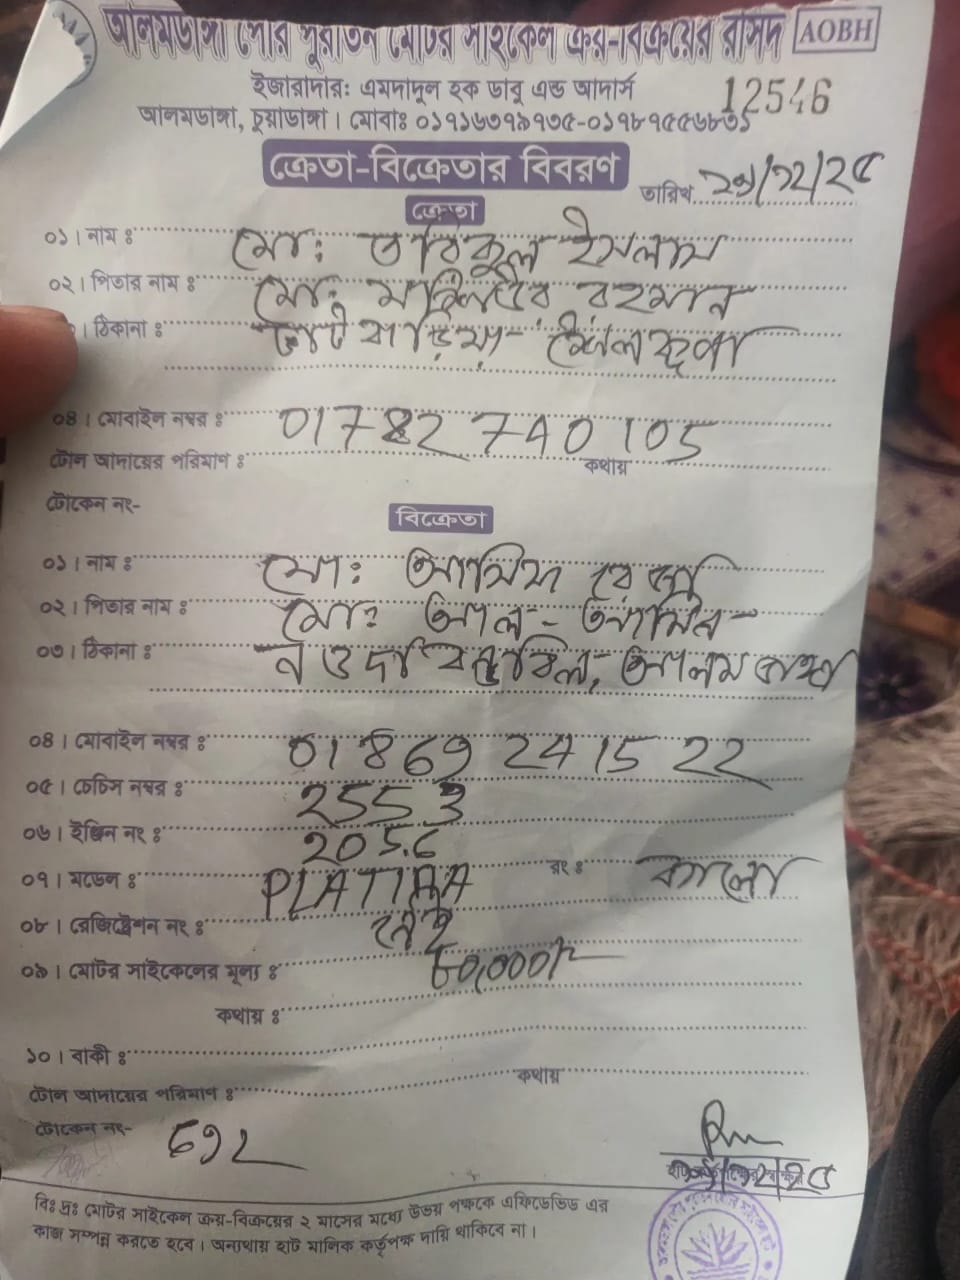 আলমডাঙ্গা পৌর পুরাতন মোটর সাইকেল ক্রয়-বিক্রয়ের রসিদ AOBH
ইজারাদার: এমদাদুল হক ডাবু এন্ড আদার্স
12546
আলমডাঙ্গা, চুয়াডাঙ্গা। মোবাঃ ০১৭১৬৩৭৯৭৩৫-০১৯৮৭৫৫৬৮৩১
ক্রেতা-বিক্রেতার বিবরণ
তারিখ
ক্রেতা
০১। নাম ঃ মো: তরিকুল ইসলাম
০২। পিতার নাম ঃ মো: রহমান
। ঠিকানা ঃ
০৪। মোবাইল নম্বর ঃ 01782 740 105
টোল আদায়ের পরিমাণ ঃ কথায়
টোকেন নং-
বিক্রেতা
০১। নাম ঃ মো: রেজা
০২। পিতার নাম ঃ মো: আল-আমিন
০৩। ঠিকানা ঃ আলমডাঙ্গা
০৪। মোবাইল নম্বর ঃ 01869 24 15 22
০৫। চেচিস নম্বর ঃ 2553
০৬। ইঞ্জিন নং ঃ
০৭। মডেল ঃ PLATINA রং ঃ কালো
০৮। রেজিষ্ট্রেশন নং ঃ নেই
০৯। মোটর সাইকেলের মূল্য ঃ
কথায় ঃ
১০। বাকী ঃ
টোল আদায়ের পরিমাণ ঃ কথায়
টোকেন নং-
বিঃ দ্রঃ মোটর সাইকেল ক্রয়-বিক্রয়ের ২ মাসের মধ্যে উভয় পক্ষকে এফিডেভিড এর
কাজ সম্পন্ন করতে হবে। অন্যথায় হাট মালিক কর্তৃপক্ষ দায়ি থাকিবে না।